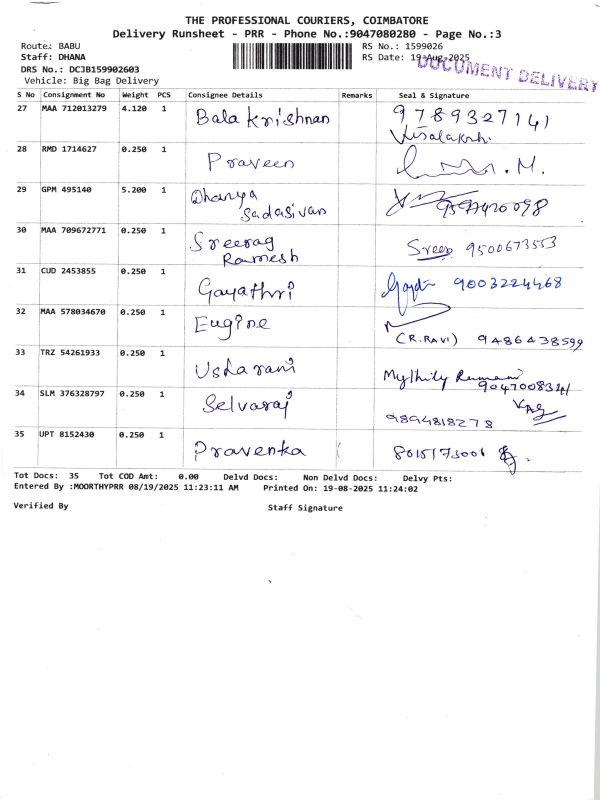 THE PROFESSIONAL COURIERS, COIMBATORE
Delivery Runsheet - PRR - Phone No.:9047080280 - Page No.:3
Route: BABU
RS No.: 1599026
Staff: DHANA
RS Date: 19-Aug-2025
DOCUMENT DELIVERY
DRS No.: DCJB159902603
Vehicle: Big Bag Delivery
S No Consignment No Weight PCS Consignee Details Remarks Seal & Signature
27 MAA 712013279 4.120 1 Bala Krishnan 9789327141
Visalakshi
28 RMD 1714627 0.250 1 Praveen M.
29 GPM 495140 5.200 1 Dhanya
Sadasivan
30 MAA 709672771 0.250 1 Sreerag
Ramesh
Sree 9500673553
31 CUD 2453855 0.250 1 Gayathri 9003224468
32 MAA 578034670 0.250 1 Eugine
(R.RAVI) 9486438599
33 TRZ 54261933 0.250 1 Usharani Mythily Ramani
9047008341
34 SLM 376328797 0.250 1 Selvaraj
9894818278
35 UPT 8152430 0.250 1 Pravenka 8015173006
Tot Docs: 35 Tot COD Amt: 0.00 Delvd Docs: Non Delvd Docs: Delvy Pts:
Entered By :MOORTHYPRR 08/19/2025 11:23:11 AM Printed On: 19-08-2025 11:24:02
Verified By Staff Signature